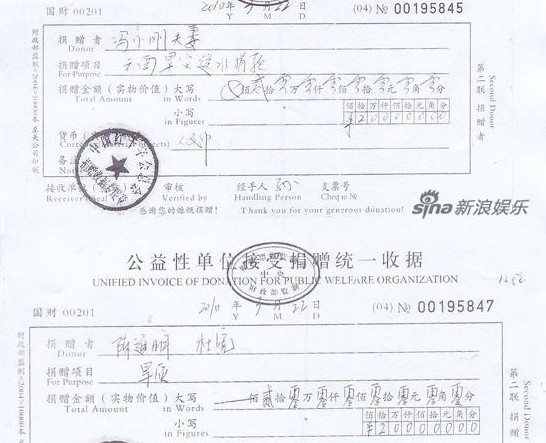 国财 00201 2010 年 3 月 22 日 (04) № 00195845
Y M D
捐赠者 冯小刚夫妻
Donor
捐赠项目 云南旱灾送水捐赠
For Purpose
捐赠金额（实物价值）大写 佰贰拾零万零仟零佰零拾零元零角零分
Total Amount in Words
佰拾万仟佰拾元角分
小写 ¥20000000
in Figures
货币 人民币
Curren
备注
No
接收单 审核 经手人 支票号
Receiver's Seal Verified by Handling Person Cheque №
感谢您的慷慨捐赠! Thank you for your generous donation!
第二联 捐赠者
Second Donor
sina 新浪娱乐
公益性单位接受捐赠统一收据
UNIFIED INVOICE OF DONATION FOR PUBLIC WELFARE ORGANIZATION
财政部监制
国财 00201 2010 年 3 月 22 日 (04) № 00195847
Y M D
捐赠者
Donor
捐赠项目 旱灾
For Purpose
捐赠金额（实物价值）大写 佰贰拾零万零仟零佰零拾零元零角零分
Total Amount in Words
佰拾万仟佰拾元角分
小写 ¥20000000
in Figures
第二联 捐赠者
Second Donor